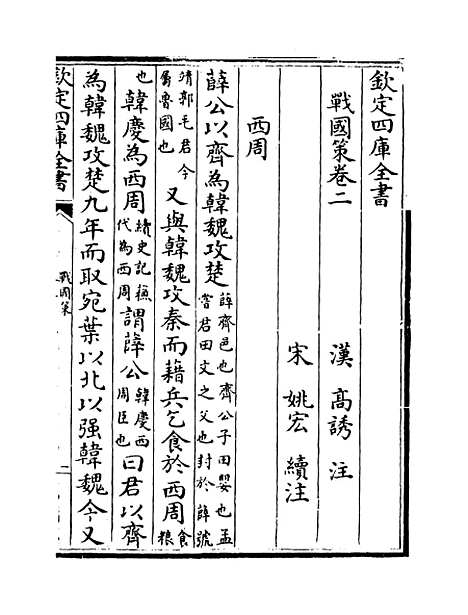 欽定四庫全書
戰國策卷二
漢 高誘 注
宋 姚宏 續注
西周
薛公以齊為韓魏攻楚薛齊邑也齊公子田嬰也孟嘗君田文之父也封於薛號
靖郭毛君今屬魯國也又與韓魏攻秦而藉兵乞食於西周食粮
也韓慶為西周續史記蘓代為西周謂薛公韓慶西周臣也曰君以齊
為韓魏攻楚九年而取宛葉以北以强韓魏今又
欽定四庫全書
戰國策
二